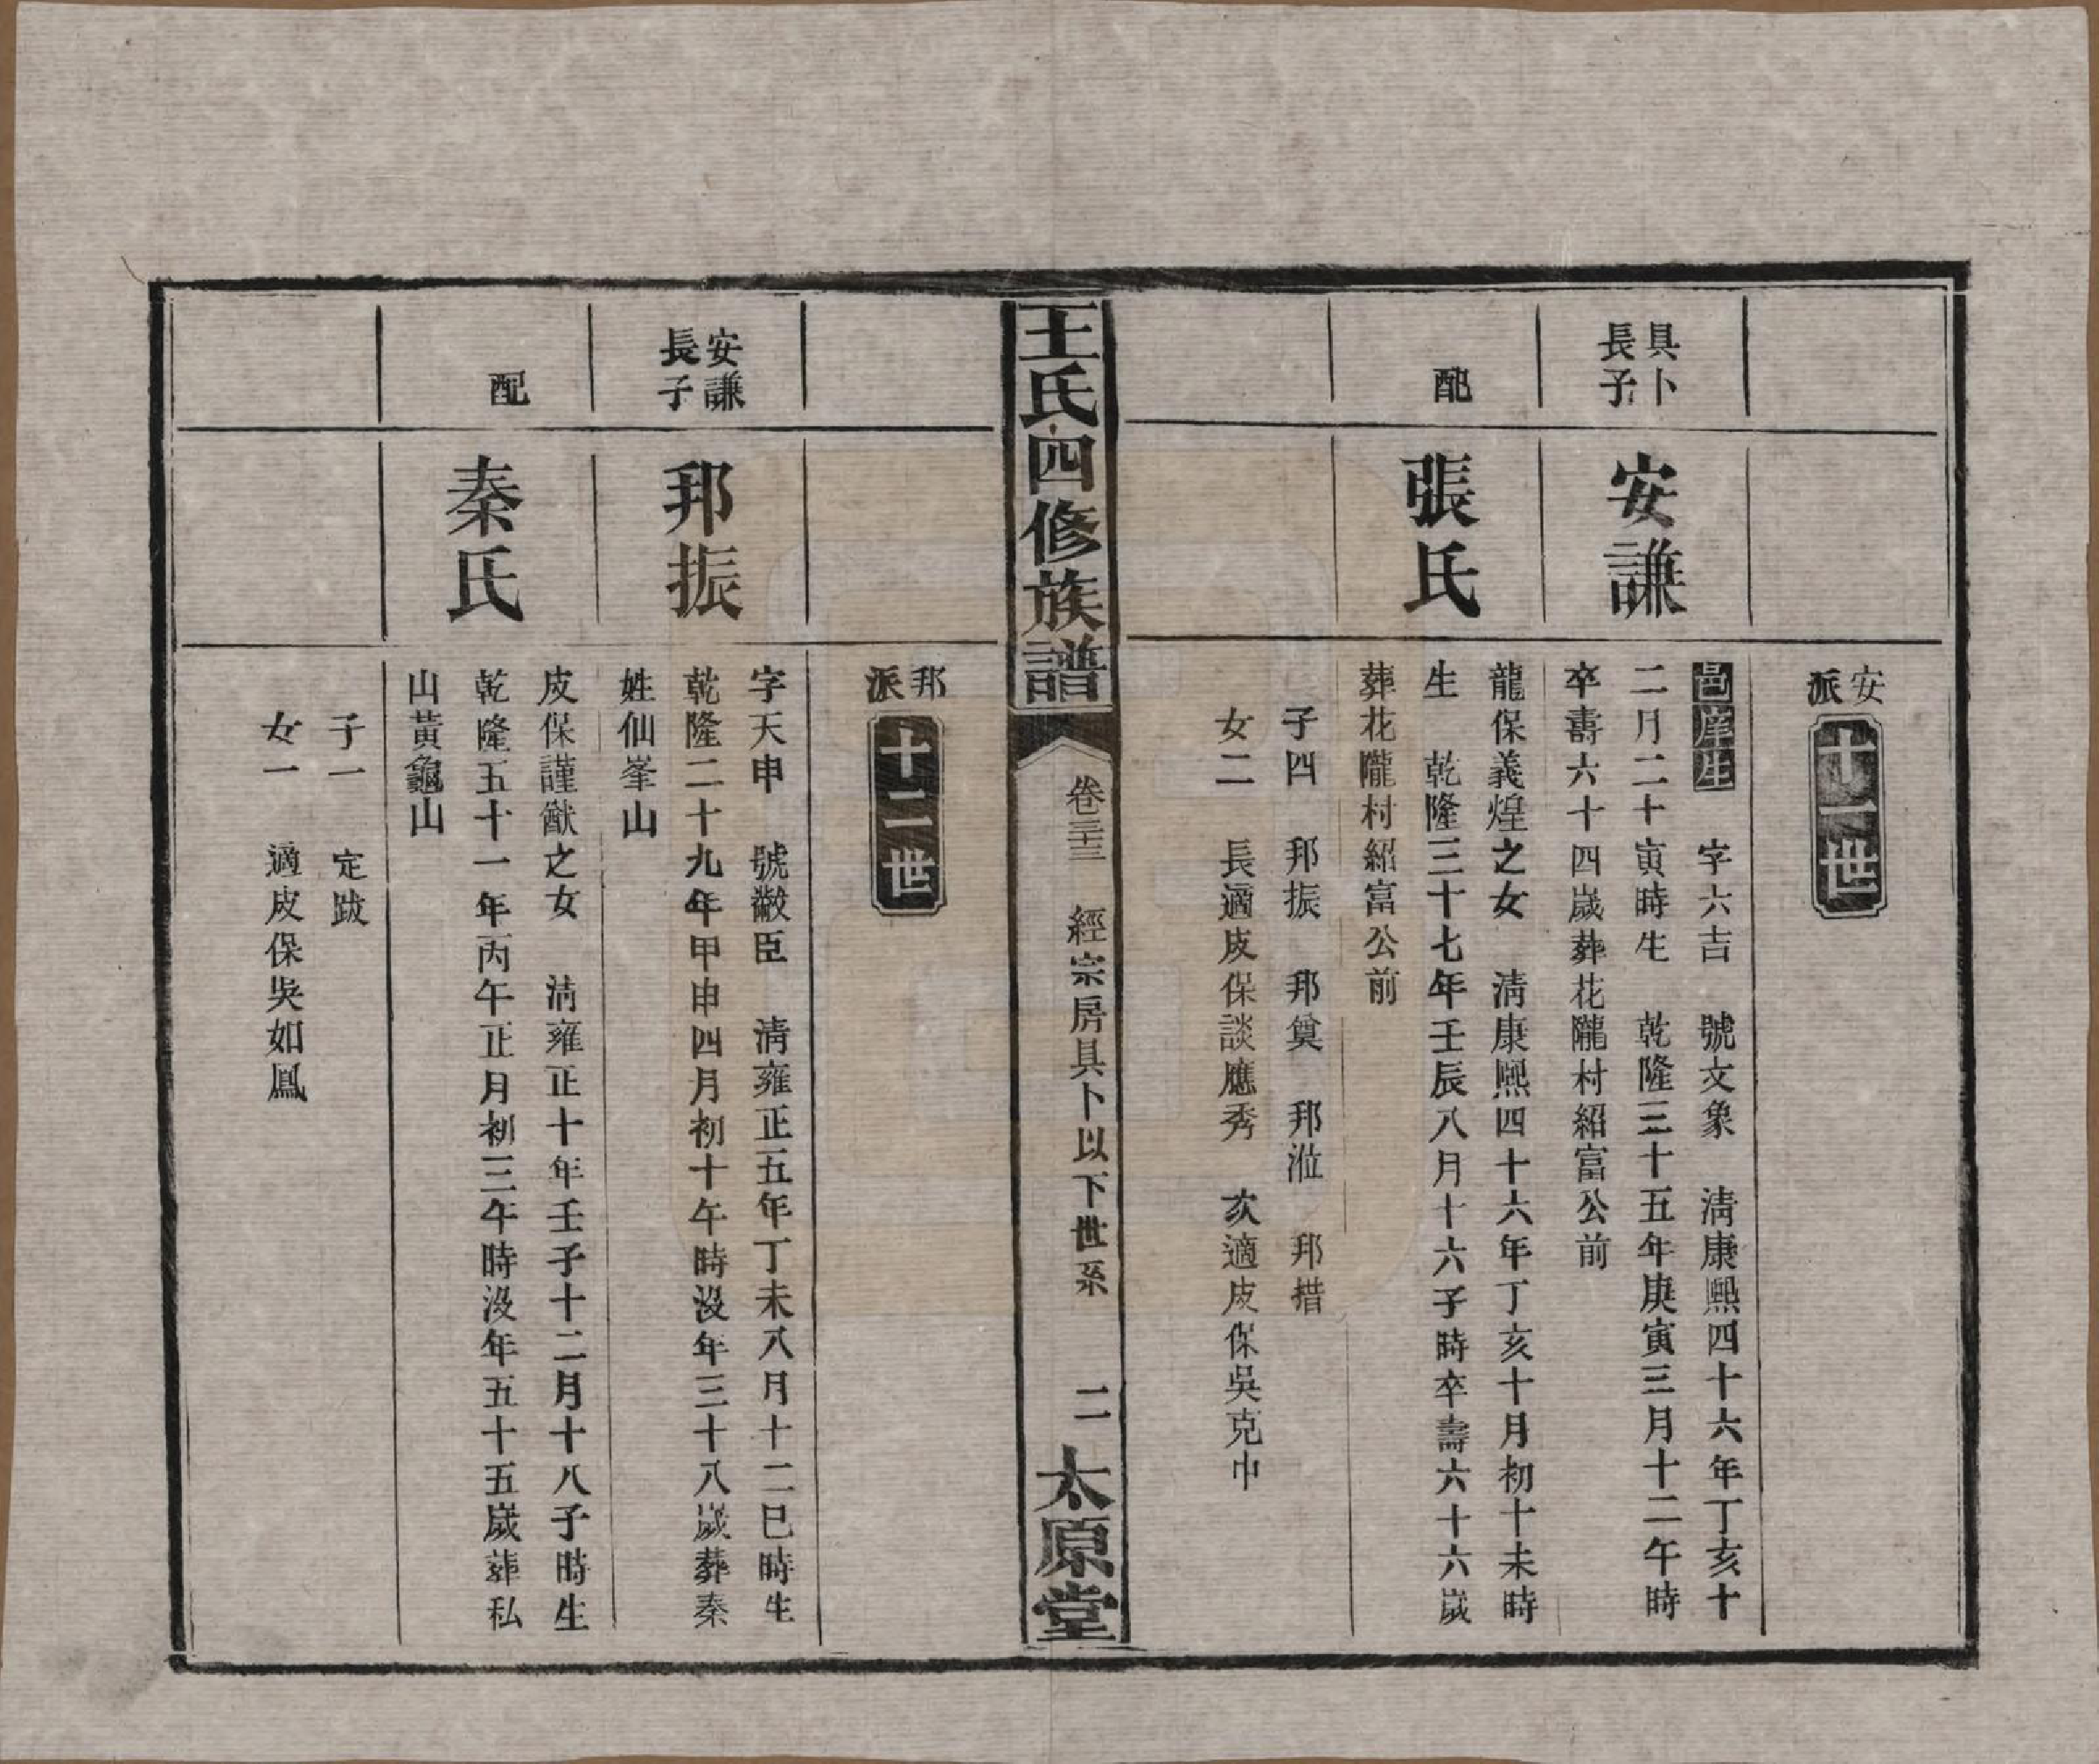 安派
十一世
具卜長子
安謙
邑庠生　字六吉　號文象　清康熙四十六年丁亥十
二月二十寅時生　乾隆三十五年庚寅三月十二午時
卒壽六十四歲葬花隴村紹富公前
配
張氏
龍保義煌之女　清康熙四十六年丁亥十月初十未時
生　乾隆三十七年壬辰八月十六子時卒壽六十六歲
葬花隴村紹富公前
子四　邦振　邦奠　邦涖　邦措
女二　長適皮保談應秀　次適皮保吳克中
王氏四修族譜
卷三十三　經宗房具卜以下世系　二
太原堂
邦派
十二世
安謙長子
邦振
字天申　號黻臣　清雍正五年丁未八月十二巳時生
乾隆二十九年甲申四月初十午時沒年三十八歲葬秦
姓仙峯山
配
秦氏
皮保謹猷之女　清雍正十年壬子十二月十八子時生
乾隆五十一年丙午正月初三午時沒年五十五歲葬私
山黃龜山
子一　定跋
女一　適皮保吳如鳳